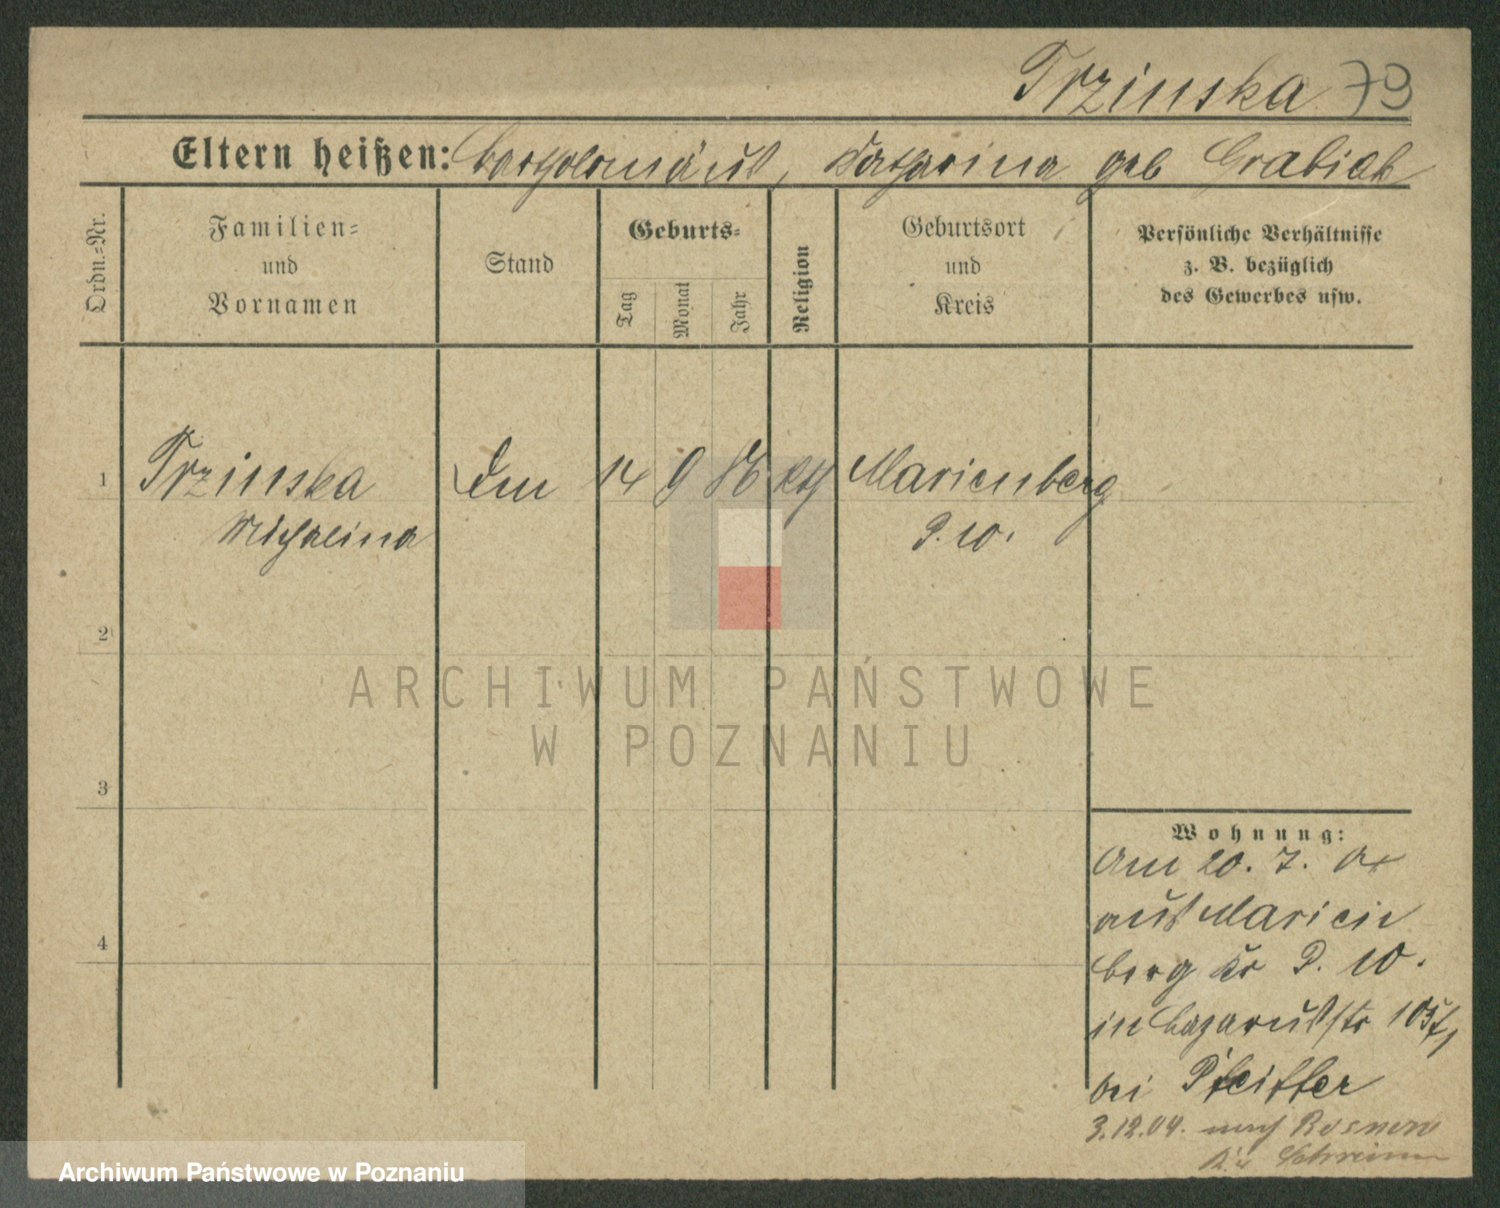 Trzinska 79
Eltern heißen: Bartholomäus, Katharina geb Grabiak
Ordn.-Nr.
Familien-
und
Vornamen
Stand
Geburts-
Tag
Monat
Jahr
Religion
Geburtsort
und
Kreis
Persönliche Verhältnisse
z. B. bezüglich
des Gewerbes usw.
1 Trzinska 14 9 86 kth Marienberg
Michalina P. W.
2
3
4
Wohnung:
Am 20. 7. 04
aus Marien
berg Kr P. W.
in Lazarusstr
bei Pfeiffer
3.12.04. nach Rosnowo
ARCHIWUM PAŃSTWOWE
W POZNANIU
Archiwum Państwowe w Poznaniu